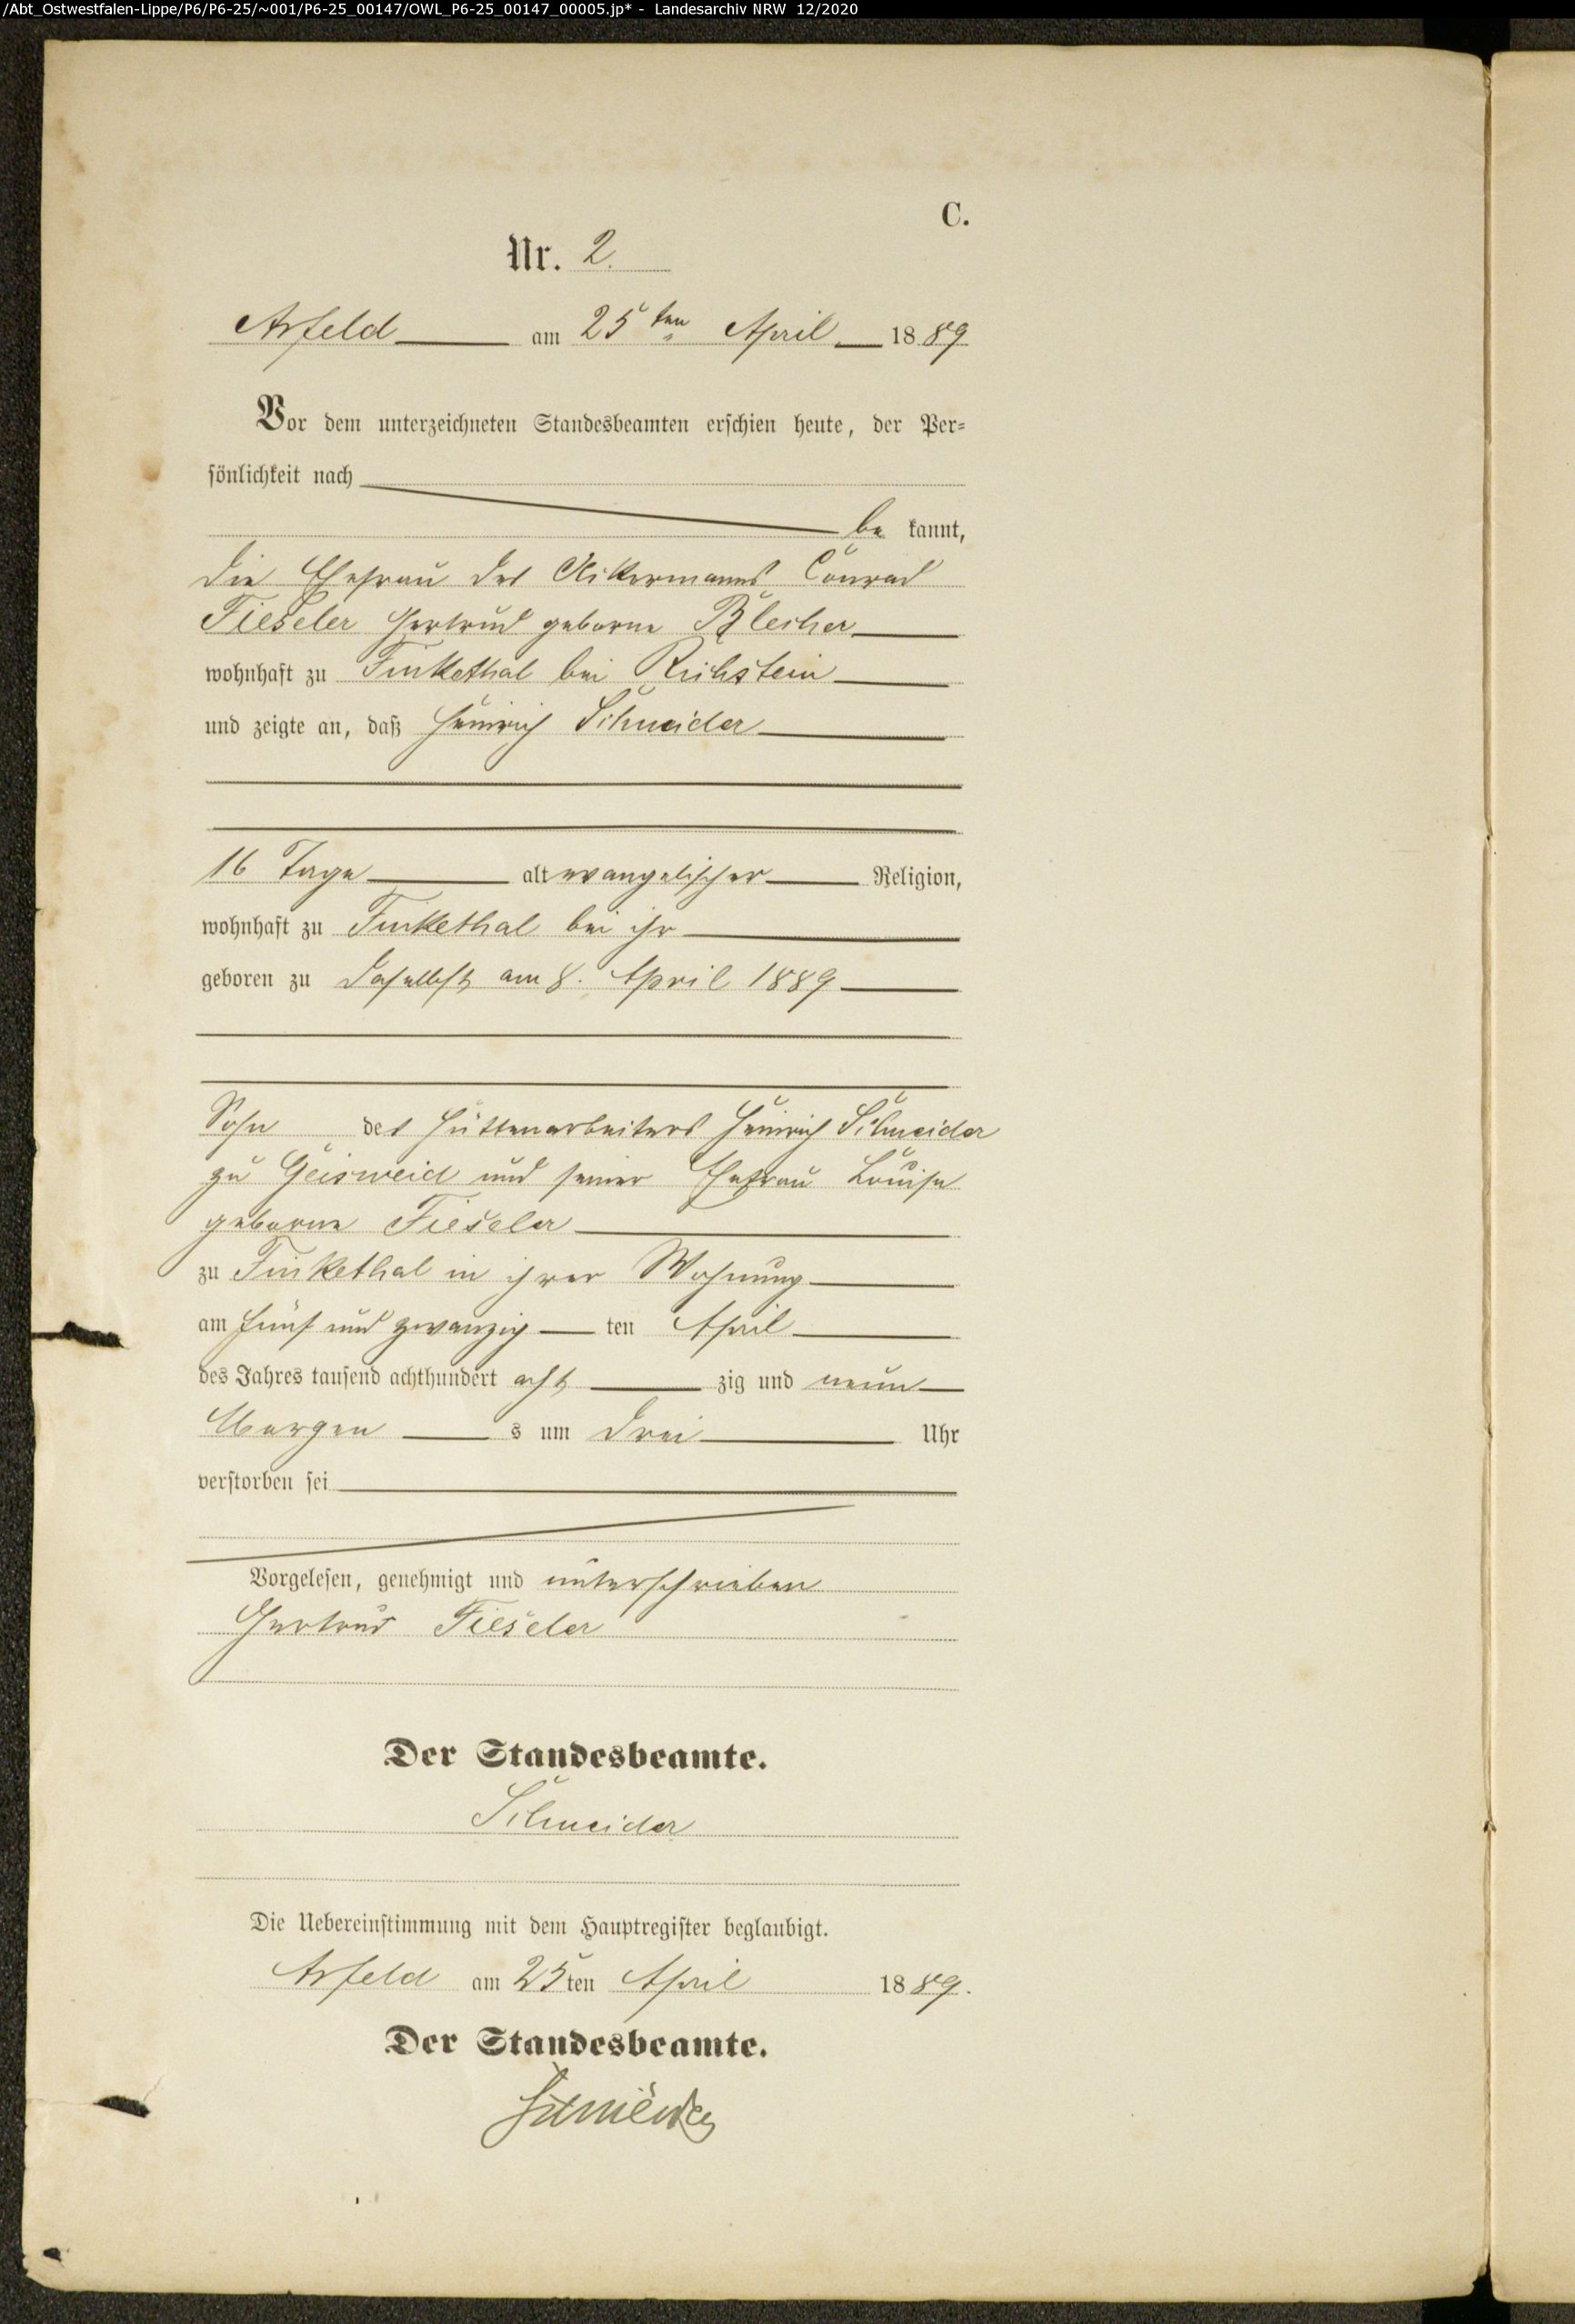 /Abt_Ostwestfalen-Lippe/P6/P6-25/~001/P6-25_00147/OWL_P6-25_00147_00005.jp* - Landesarchiv NRW 12/2020
C.
Nr. 2.
Arfeld am 25ten April 1889
Vor dem unterzeichneten Standesbeamten erschien heute, der Per-
sönlichkeit nach
be kannt,
die Ehefrau des Ackermanns Conrad
Fieseler Gertrud geborne Blecher
wohnhaft zu Finkethal bei Richstein
und zeigte an, daß Heinrich Schneider
16 Tage alt evangelischer Religion,
wohnhaft zu Finkethal bei ihr
geboren zu daselbst am 8. April 1889
Sohn des Hüttenarbeiters Heinrich Schneider
zu Geisweid und seiner Ehefrau Louise
geborne Fieseler
zu Finkethal in ihrer Wohnung
am fünf und zwanzig ten April
des Jahres tausend achthundert acht zig und neun
Morgen s um drei Uhr
verstorben sei
Vorgelesen, genehmigt und unterschrieben
Gertrud Fieseler
Der Standesbeamte.
Schneider
Die Uebereinstimmung mit dem Hauptregister beglaubigt.
Arfeld am 25ten April 1889.
Der Standesbeamte.
Schneider